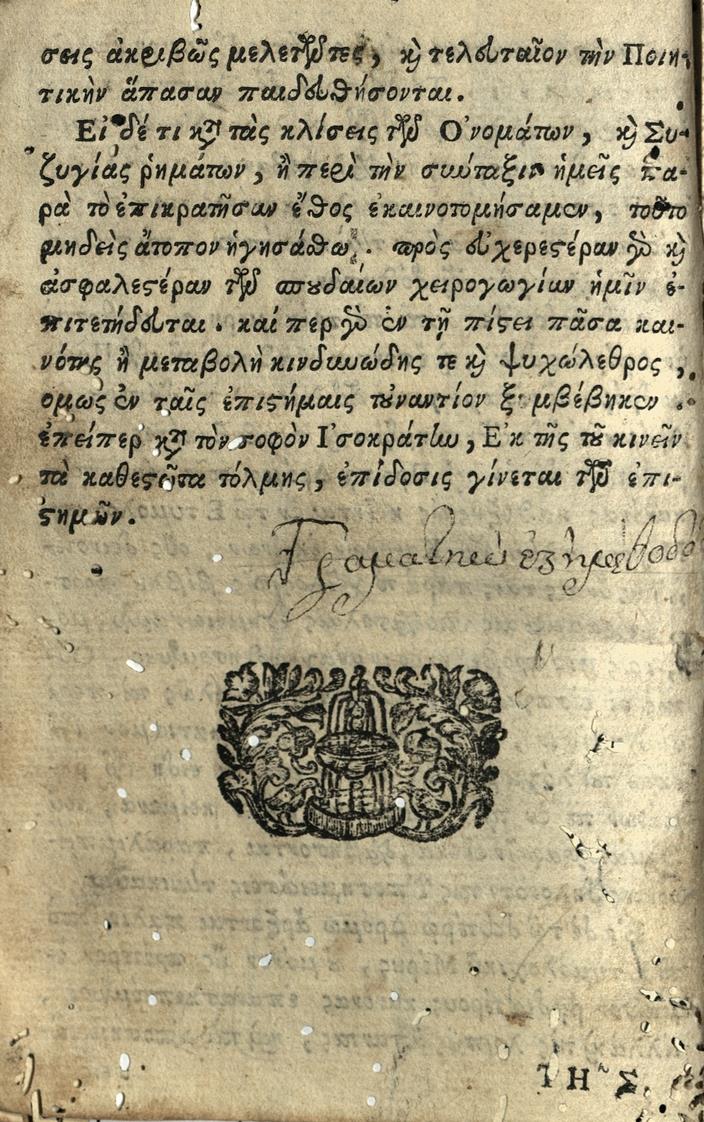 σεις ἀκριβῶς μελετῶντες, καὶ τελευταῖον τὴν Ποιη-
τικὴν ἅπασαν παιδευθήσονται.
Εἰ δέ τι κατὰ τὰς κλίσεις τῶν Ὀνομάτων, καὶ Συ-
ζυγίας ῥημάτων, ἢ περὶ τὴν σύνταξιν ἡμεῖς πα-
ρὰ τὸ ἐπικρατῆσαν ἔθος ἐκαινοτομήσαμεν, τοῦτο
μηδεὶς ἄτοπον ἡγησάσθω. πρὸς εὐχερεστέραν γὰρ καὶ
ἀσφαλεστέραν τῶν σπουδαίων χειραγωγίαν ἡμῖν ἐ-
πιτετήδευται. καί περ γὰρ ἐν τῇ πίστει πᾶσα και-
νότης ἢ μεταβολὴ κινδυνώδης τε καὶ ψυχώλεθρος,
ομως ἐν ταῖς ἐπιστήμαις τοὐναντίον ξυμβέβηκεν.
ἐπείπερ κατὰ τὸν σοφὸν Ἰσοκράτην, Ἐκ τῆς τοῦ κινεῖν
τὰ καθεστῶτα τόλμης, ἐπίδοσις γίνεται τῶν ἐπι-
στημῶν.